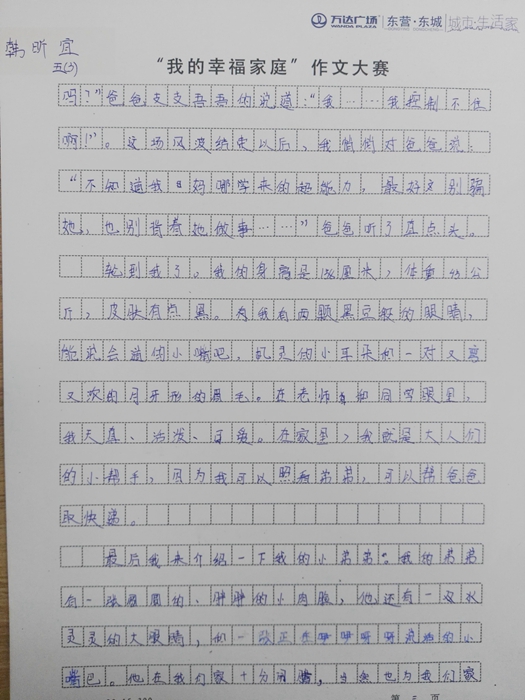 万达广场 WANDA PLAZA 东营·东城 DONGYING·DONGCHENG 城市·生活家
韩昕宜
五(3)
“我的幸福家庭”作文大赛
吗？”爸爸支支吾吾的说道：“我……我控制不住
啊！”。这场风波结束以后，我悄悄对爸爸说：
“不知道我妈哪学来的超能力，最好别骗
她，也别背着她做事……”爸爸听了直点头。
轮到我了。我的身高是138厘米，体重43公
斤，皮肤有点黑。我有两颗黑豆般的眼睛，
能说会道的小嘴吧，机灵的小耳朵和一对又弯
又浓的月牙形的眉毛。在老师和同学眼里，
我天真、活泼、可爱。在家里，我就是大人们
的小帮手，因为我可以照看弟弟，可以帮爸爸
取快递。
最后我来介绍一下我的小弟弟。我的弟弟
有一张圆圆的、胖胖的小肉脸，他还有一双水
灵灵的大眼睛，和一张正在咿咿呀呀说话的小
嘴巴。他在我们家十分闹腾，当然也为我们家
第 页